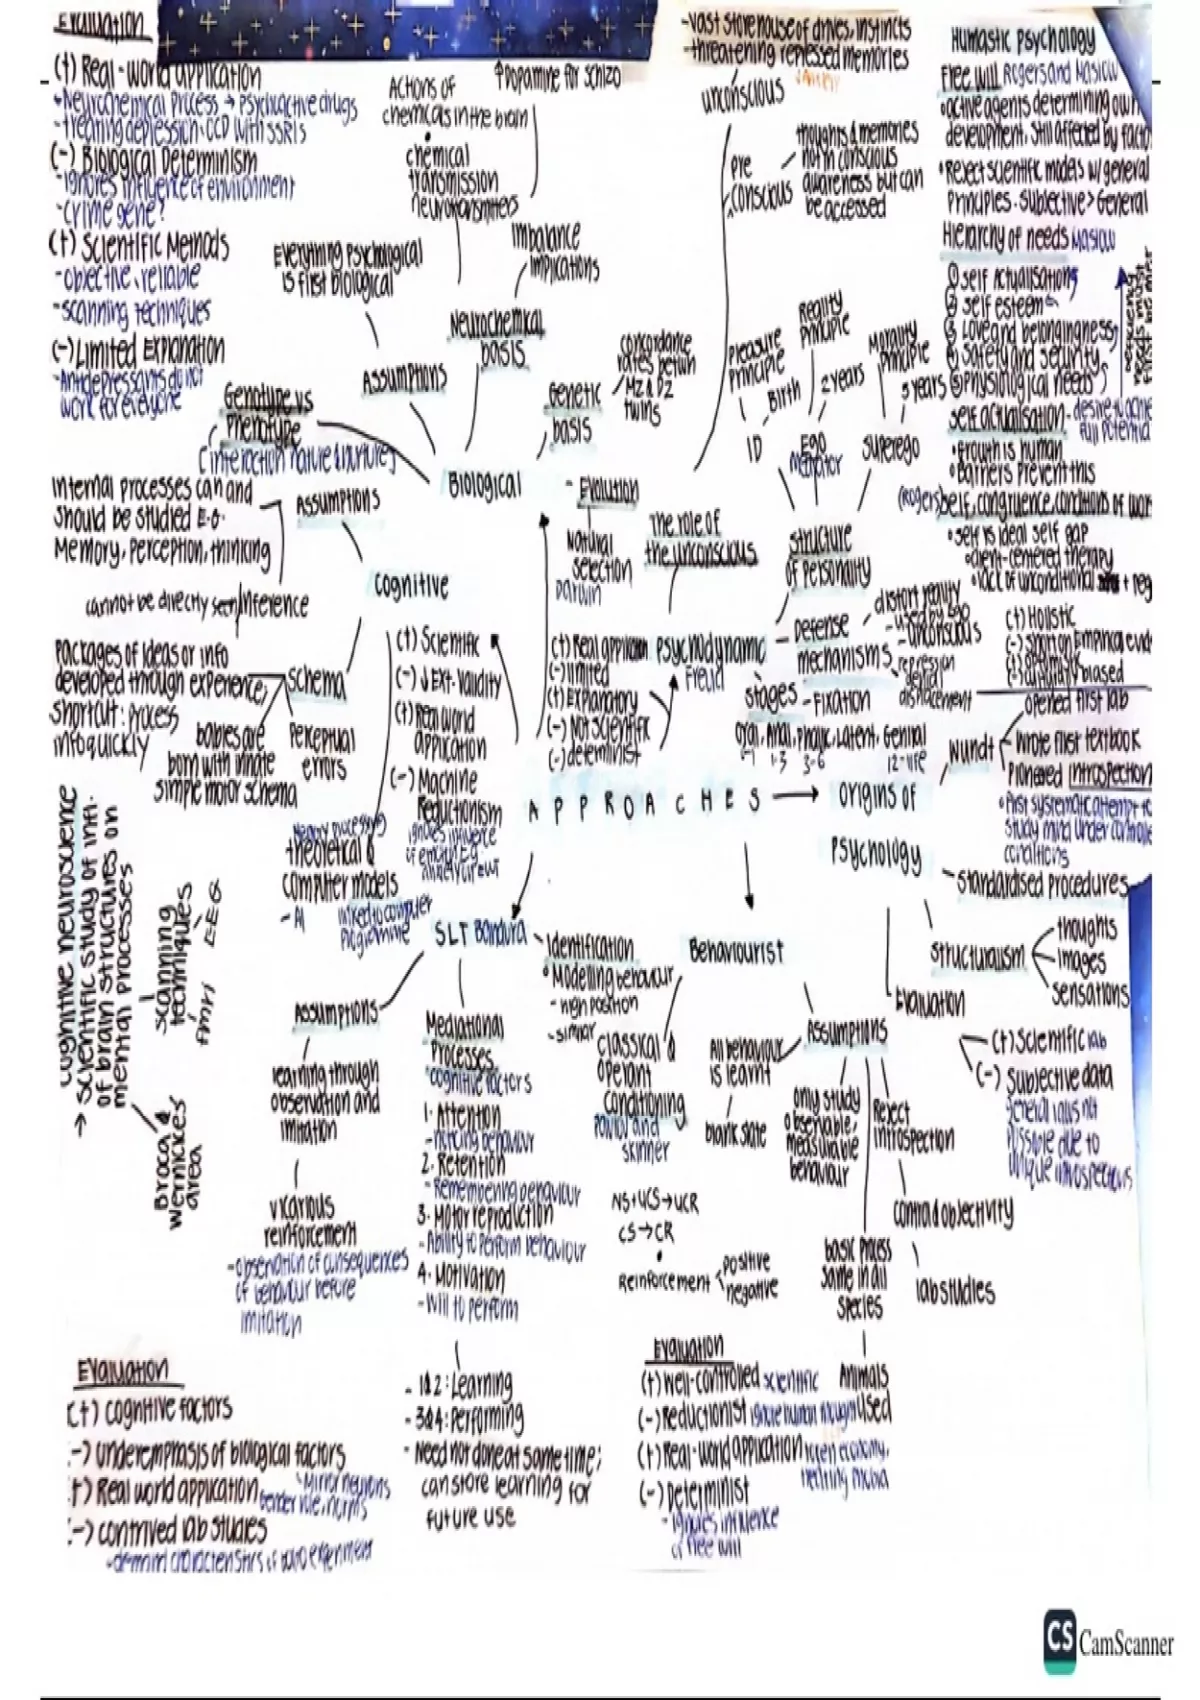 Evaluation
(+) Real-world application
- Neurochemical Process → Psychoactive drugs
- treating depression. OCD with SSRIs
(-) Biological Determinism
- ignores influence of environment
- crime gene?
(+) Scientific Methods
- objective, reliable
- scanning techniques
(-) Limited Explanation
- Antidepressants do not
work for everyone
Actions of
chemicals in the brain
↑ Dopamine for schizo
chemical
transmission
neurotransmitters
Imbalance
implications
Everything Psychological
is first biological
Neurochemical
basis
Assumptions
Genotype vs
Phenotype
(interaction nature & nurture)
Genetic
basis
concordance
rates betwn
MZ & DZ
twins
Biological
- Evolution
Natural
selection
Darwin
Internal processes can and
should be studied E.g.
Memory, perception, thinking
Assumptions
cannot be directly seen
Inference
cognitive
Packages of ideas or info
developed through experience,
Shortcut: process
info quickly
schema
babies are
born with innate
simple motor schema
Perceptual
errors
theoretical &
computer models
- AI
linked to computer
Programme
cognitive neuroscience
→ scientific study of infl.
of brain structures on
mental processes
scanning
techniques
fMRI
EEG
Broca &
Wernickes
area
(+) Scientific
(-) ↓ Ext. Validity
(+) Real world
application
(-) Machine
Reductionism
ignores influence
of emotion E.g.
- Vast storehouse of drives, instincts
- threatening repressed memories
unconscious
Pre
conscious
thoughts & memories
not in conscious
awareness but can
be accessed
the role of
the unconscious
Pleasure
Principle
Birth
ID
Reality
Principle
2 years
Ego
Mediator
Morality
Principle
5 years
Superego
structure
of Personality
Psychodynamic
Freud
- Defense
mechanisms
distort reality
- used by Ego
- unconscious
repression
denial
displacement
stages - Fixation
Oral, Anal, Phallic, Latent, Genital
0-1 1-3 3-6 12-life
(+) Real application
(-) limited
(+) Explanatory
(-) Not scientific
(-) determinist
Humastic Psychology
Free will Rogers and Maslow
• active agents determining own
development, still affected by facto
• Reject scientific models w/ general
Principles. Subjective > General
Hierarchy of needs Maslow
① self Actualisation
② self esteem
③ Love and belongingness
④ Safety and security
⑤ Physiological needs
self actualisation - desire to achie
full potential
• Growth is human
• Barriers prevent this
(Rogers) self, congruence, conditions of wor
• self vs ideal self gap
• client-centered therapy
• lack of unconditional + reg
(+) Holistic
(-) short on Empirical evid
(+) optimistic
(-) culturally biased
APPROACHES
origins of
Psychology
Wundt
opened first lab
Wrote first textbook
Pioneered Introspection
• First systematic attempt to
study mind under controlle
conditions
- standardised procedures
structuralism
thoughts
images
sensations
Evaluation
(+) Scientific lab
(-) Subjective data
general laws not
possible due to
unique introspections
SLT Bandura
Assumptions
learning through
observation and
imitation
vicarious
reinforcement
- observation of consequences
of behaviour before
imitation
Mediational
Processes
cognitive factors
1. Attention
- noticing behaviour
2. Retention
- Remembering behaviour
3. Motor reproduction
- Ability to perform behaviour
4. Motivation
- Will to perform
- 1&2: Learning
- 3&4: Performing
- Need not done at same time;
can store learning for
future use
Identification
• Modelling behaviour
- high position
- similar
Evaluation
(+) cognitive factors
(-) underemphasis of biological factors
Mirror neurons
(+) Real world application
Gender role, norms
(-) contrived lab studies
Behaviourist
classical &
operant
conditioning
Pavlov and
skinner
NS+UCS→UCR
CS→CR
Reinforcement
positive
negative
Assumptions
All behaviour
is learnt
blank slate
only study
observable,
measurable
behaviour
Reject
introspection
control & objectivity
lab studies
basic process
same in all
species
Animals
used
Evaluation
(+) well-controlled scientific
(-) Reductionist ignore human thought
(+) Real-world application token economy,
treating phobia
(-) Determinist
- ignores influence
of free will
CS CamScanner